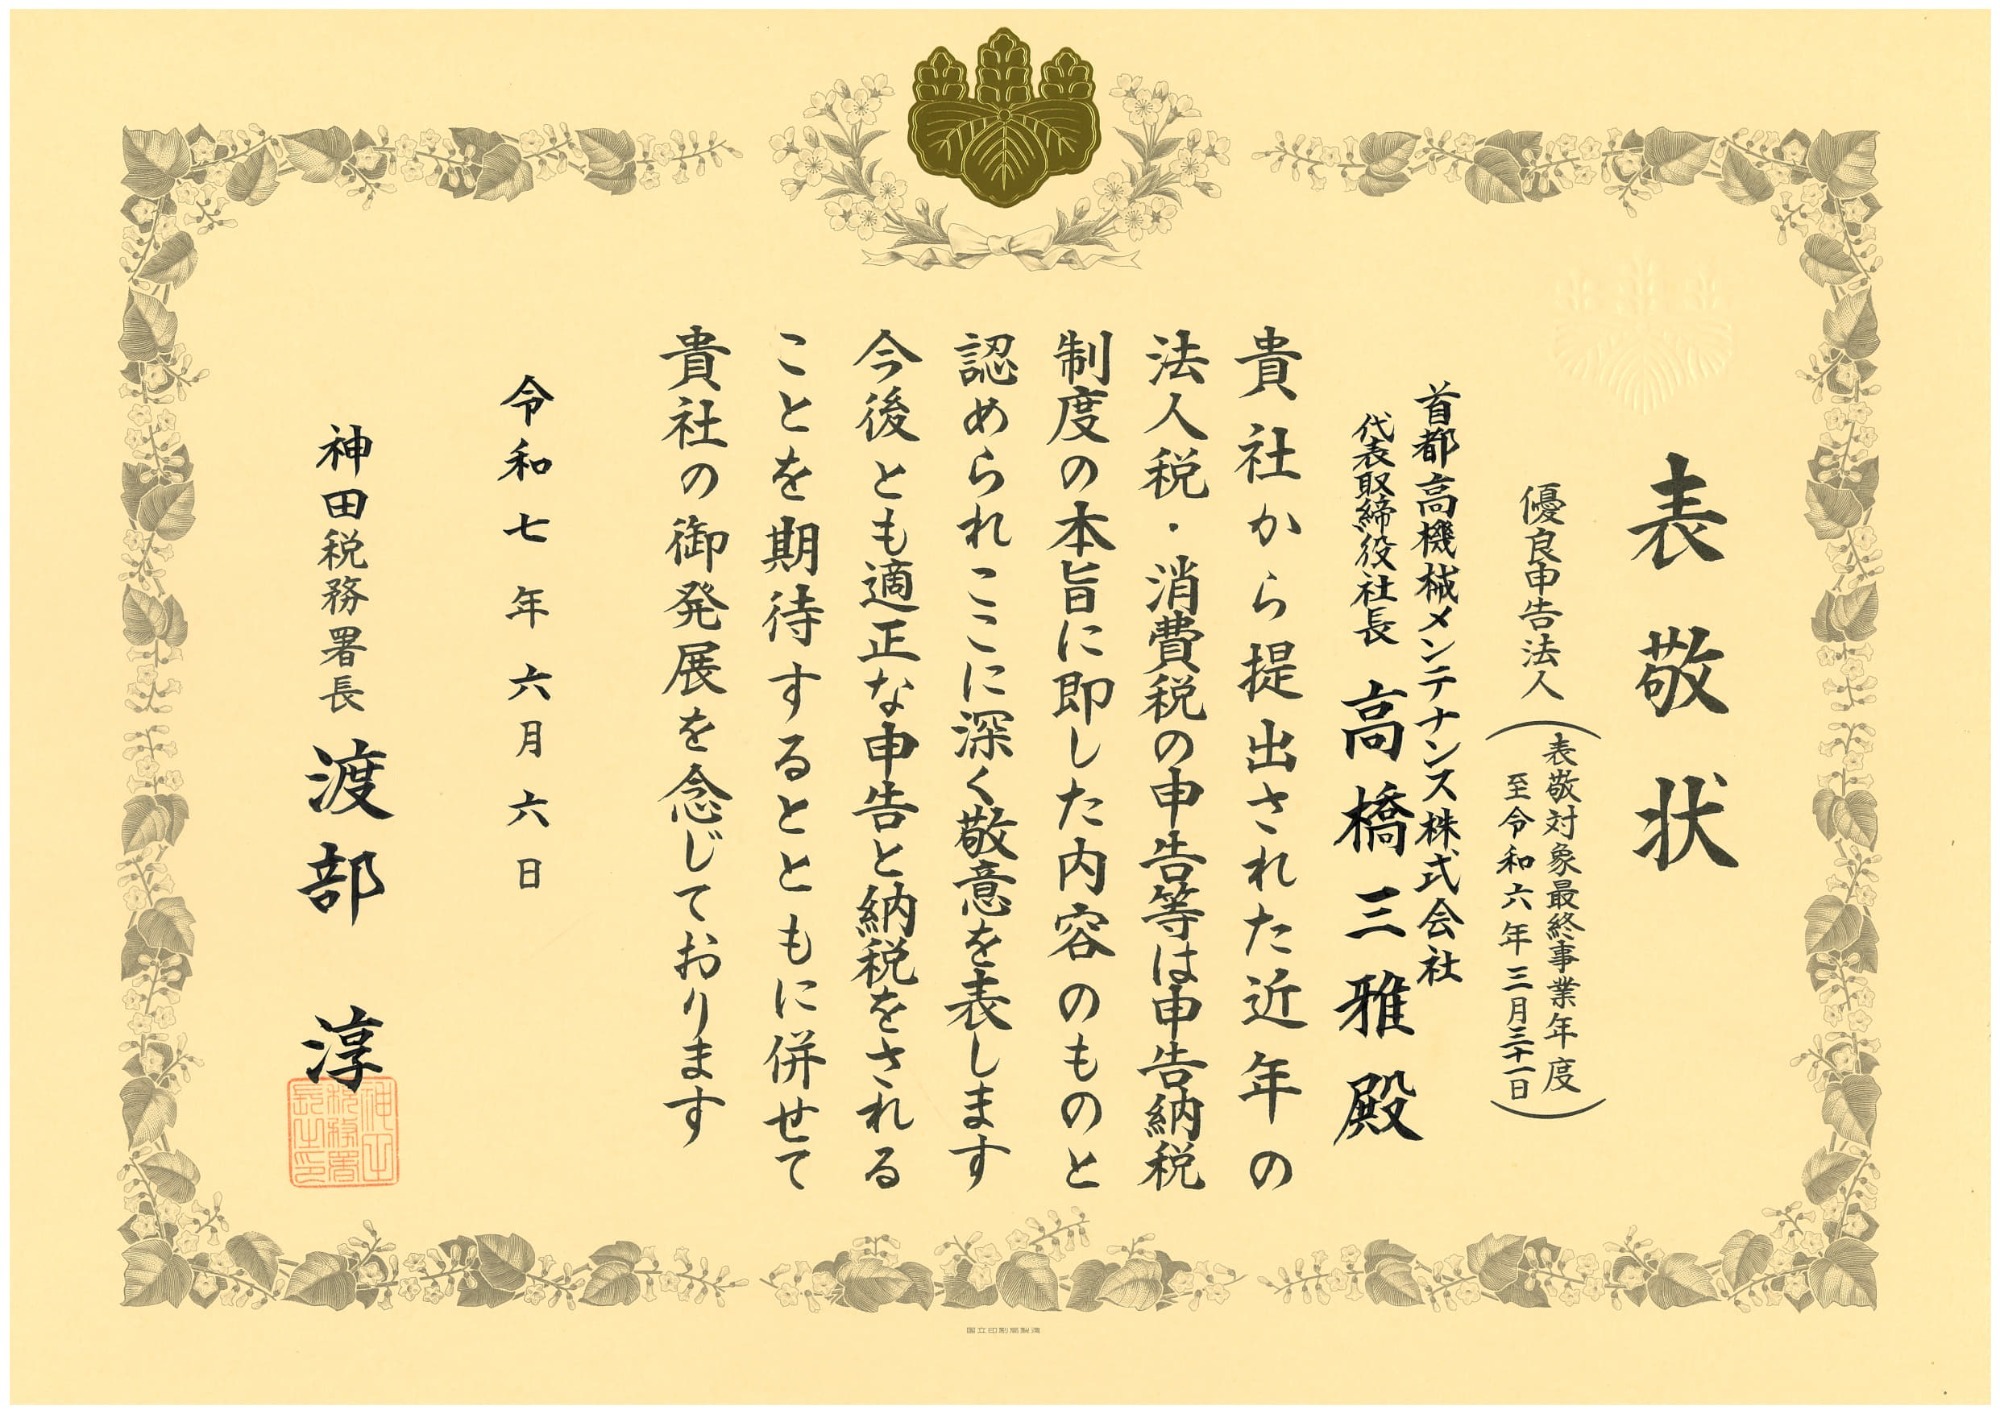 表敬状
優良申告法人
（表敬対象最終事業年度
至令和六年三月三十一日）
首都高機械メンテナンス株式会社
代表取締役社長 高橋三雅殿
貴社から提出された近年の
法人税・消費税の申告等は申告納税
制度の本旨に即した内容のものと
認められここに深く敬意を表します
今後とも適正な申告と納税をされる
ことを期待するとともに併せて
貴社の御発展を念じております
令和七年六月六日
神田税務署長 渡部 淳
神田税務署長之印
国立印刷局製造